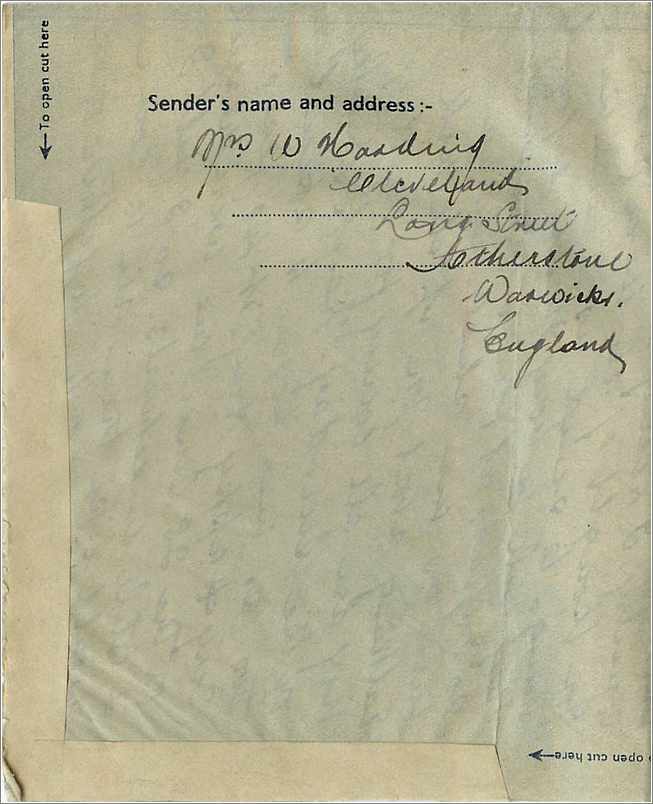 To open cut here
Sender's name and address:-
Mrs. W Harding
Cleveland,
Long Street
Atherstone
Warwicks.
England,
To open cut here